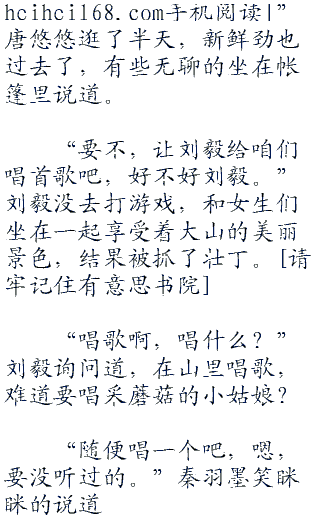 hcihci168.com手机阅读|”
唐悠悠逛了半天，新鲜劲也
过去了，有些无聊的坐在帐
篷里说道。
“要不，让刘毅给咱们
唱首歌吧，好不好刘毅。”
刘毅没去打游戏，和女生们
坐在一起享受着大山的美丽
景色，结果被抓了壮丁。[请
牢记住有意思书院]
“唱歌啊，唱什么？”
刘毅询问道，在山里唱歌，
难道要唱采蘑菇的小姑娘？
“随便唱一个吧，嗯，
要没听过的。”秦羽墨笑眯
眯的说道